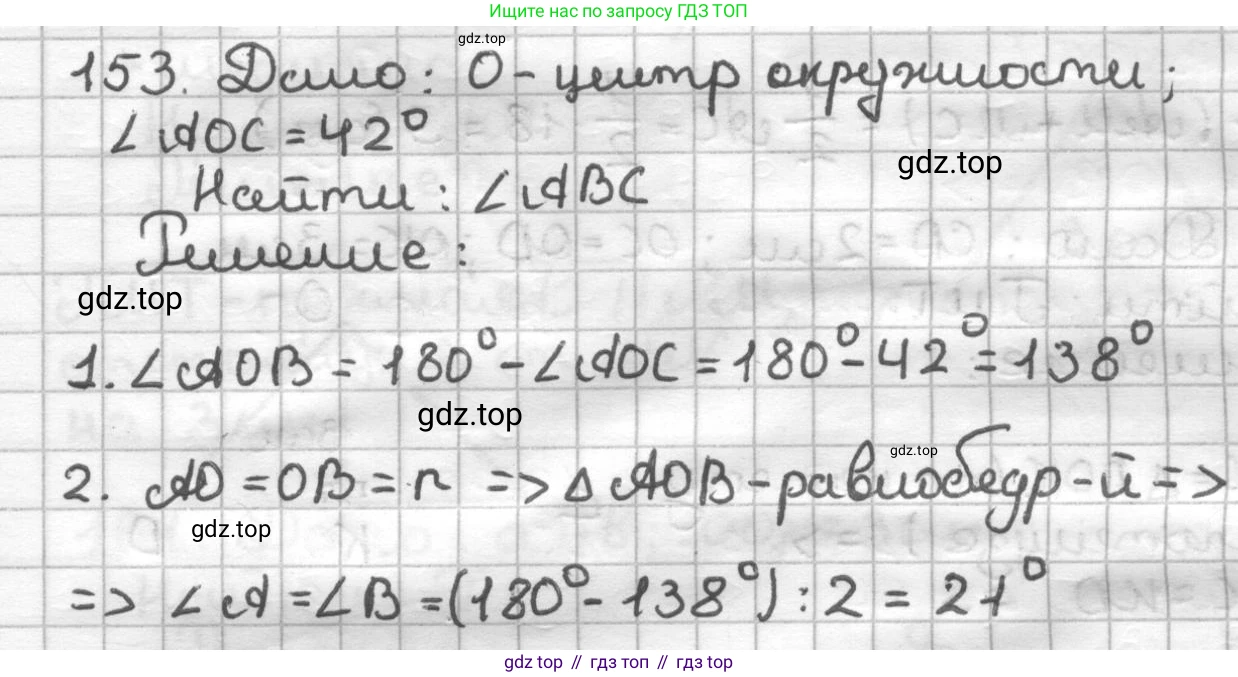 Ищите нас по запросу ГДЗ ТОП
gdz.top
153. Дано: О - центр окружности;
∠AOC = 42°
gdz.top
Найти: ∠ABC
Решение:
gdz.top
1. ∠AOB = 180° - ∠AOC = 180° - 42° = 138°
gdz.top
gdz.top
2. AO = OB = r => △AOB - равнобедр-й =>
gdz.top
=> ∠A = ∠B = (180° - 138°) : 2 = 21°
gdz top // гдз топ // гдз top